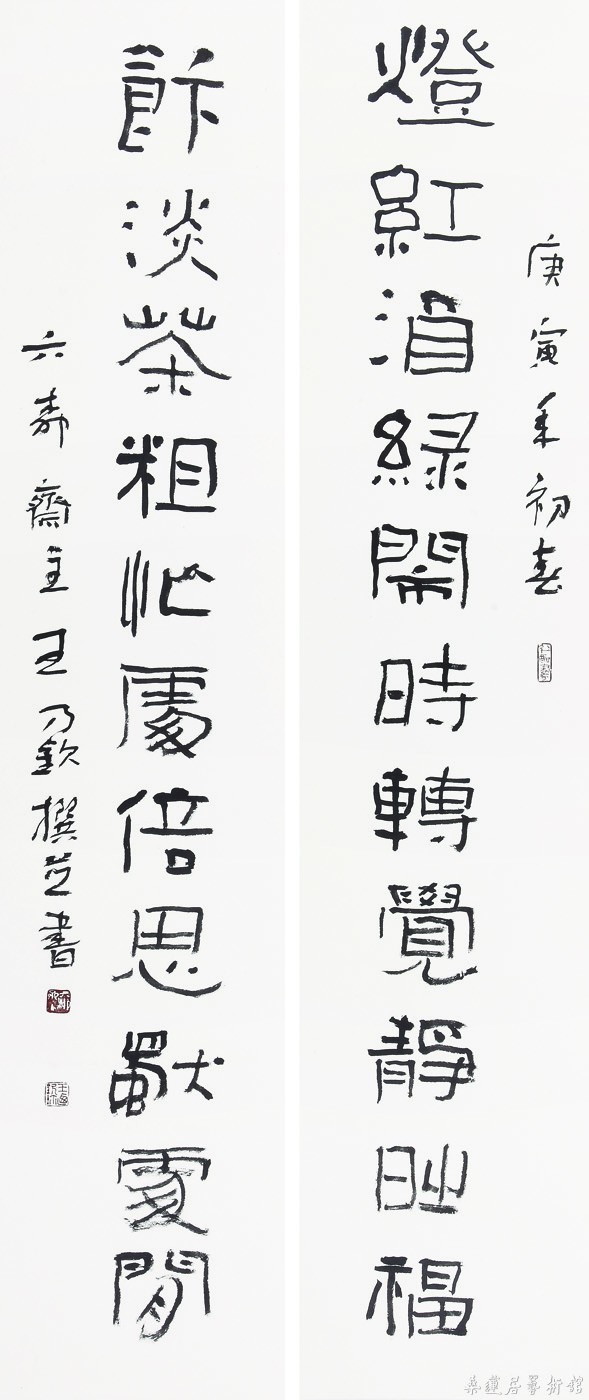 庚寅年初春
燈紅酒綠鬧時轉覺靜時福
飰淡茶粗忙處倍思獨處閒
六壽齋主王乃欽撰並書
桑蓮居藝術館